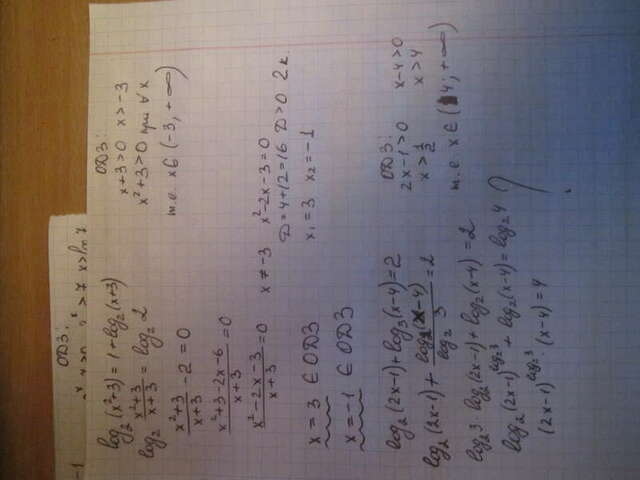 ОДЗ:
-1
log₂(x²+3) = 1+log₂(x+3)
log₂ (x²+3)/(x+3) = log₂ 2
(x²+3)/(x+3) - 2 = 0
(x²+3-2x-6)/(x+3) = 0
(x²-2x-3)/(x+3) = 0 x ≠ -3 x²-2x-3=0
D=4+12=16 D>0 2к.
x₁=3 x₂=-1
x = 3 ∈ ОДЗ
x = -1 ∈ ОДЗ
ОДЗ:
x+3>0 x>-3
x²+3>0 при ∀ x
т.е. x∈(-3,+∞)
log₂(2x-1)+log₃(x-4)=2
log₂(2x-1)+ log₂(x-4)/log₂ 3 = 2
log₂3·log₂(2x-1)+log₂(x-4)=2
log₂(2x-1)^log₂3 + log₂(x-4)=log₂4
(2x-1)^log₂3·(x-4)=4
?
ОДЗ:
2x-1>0 x-4>0
x>1/2 x>4
т.е. x∈(4;+∞)